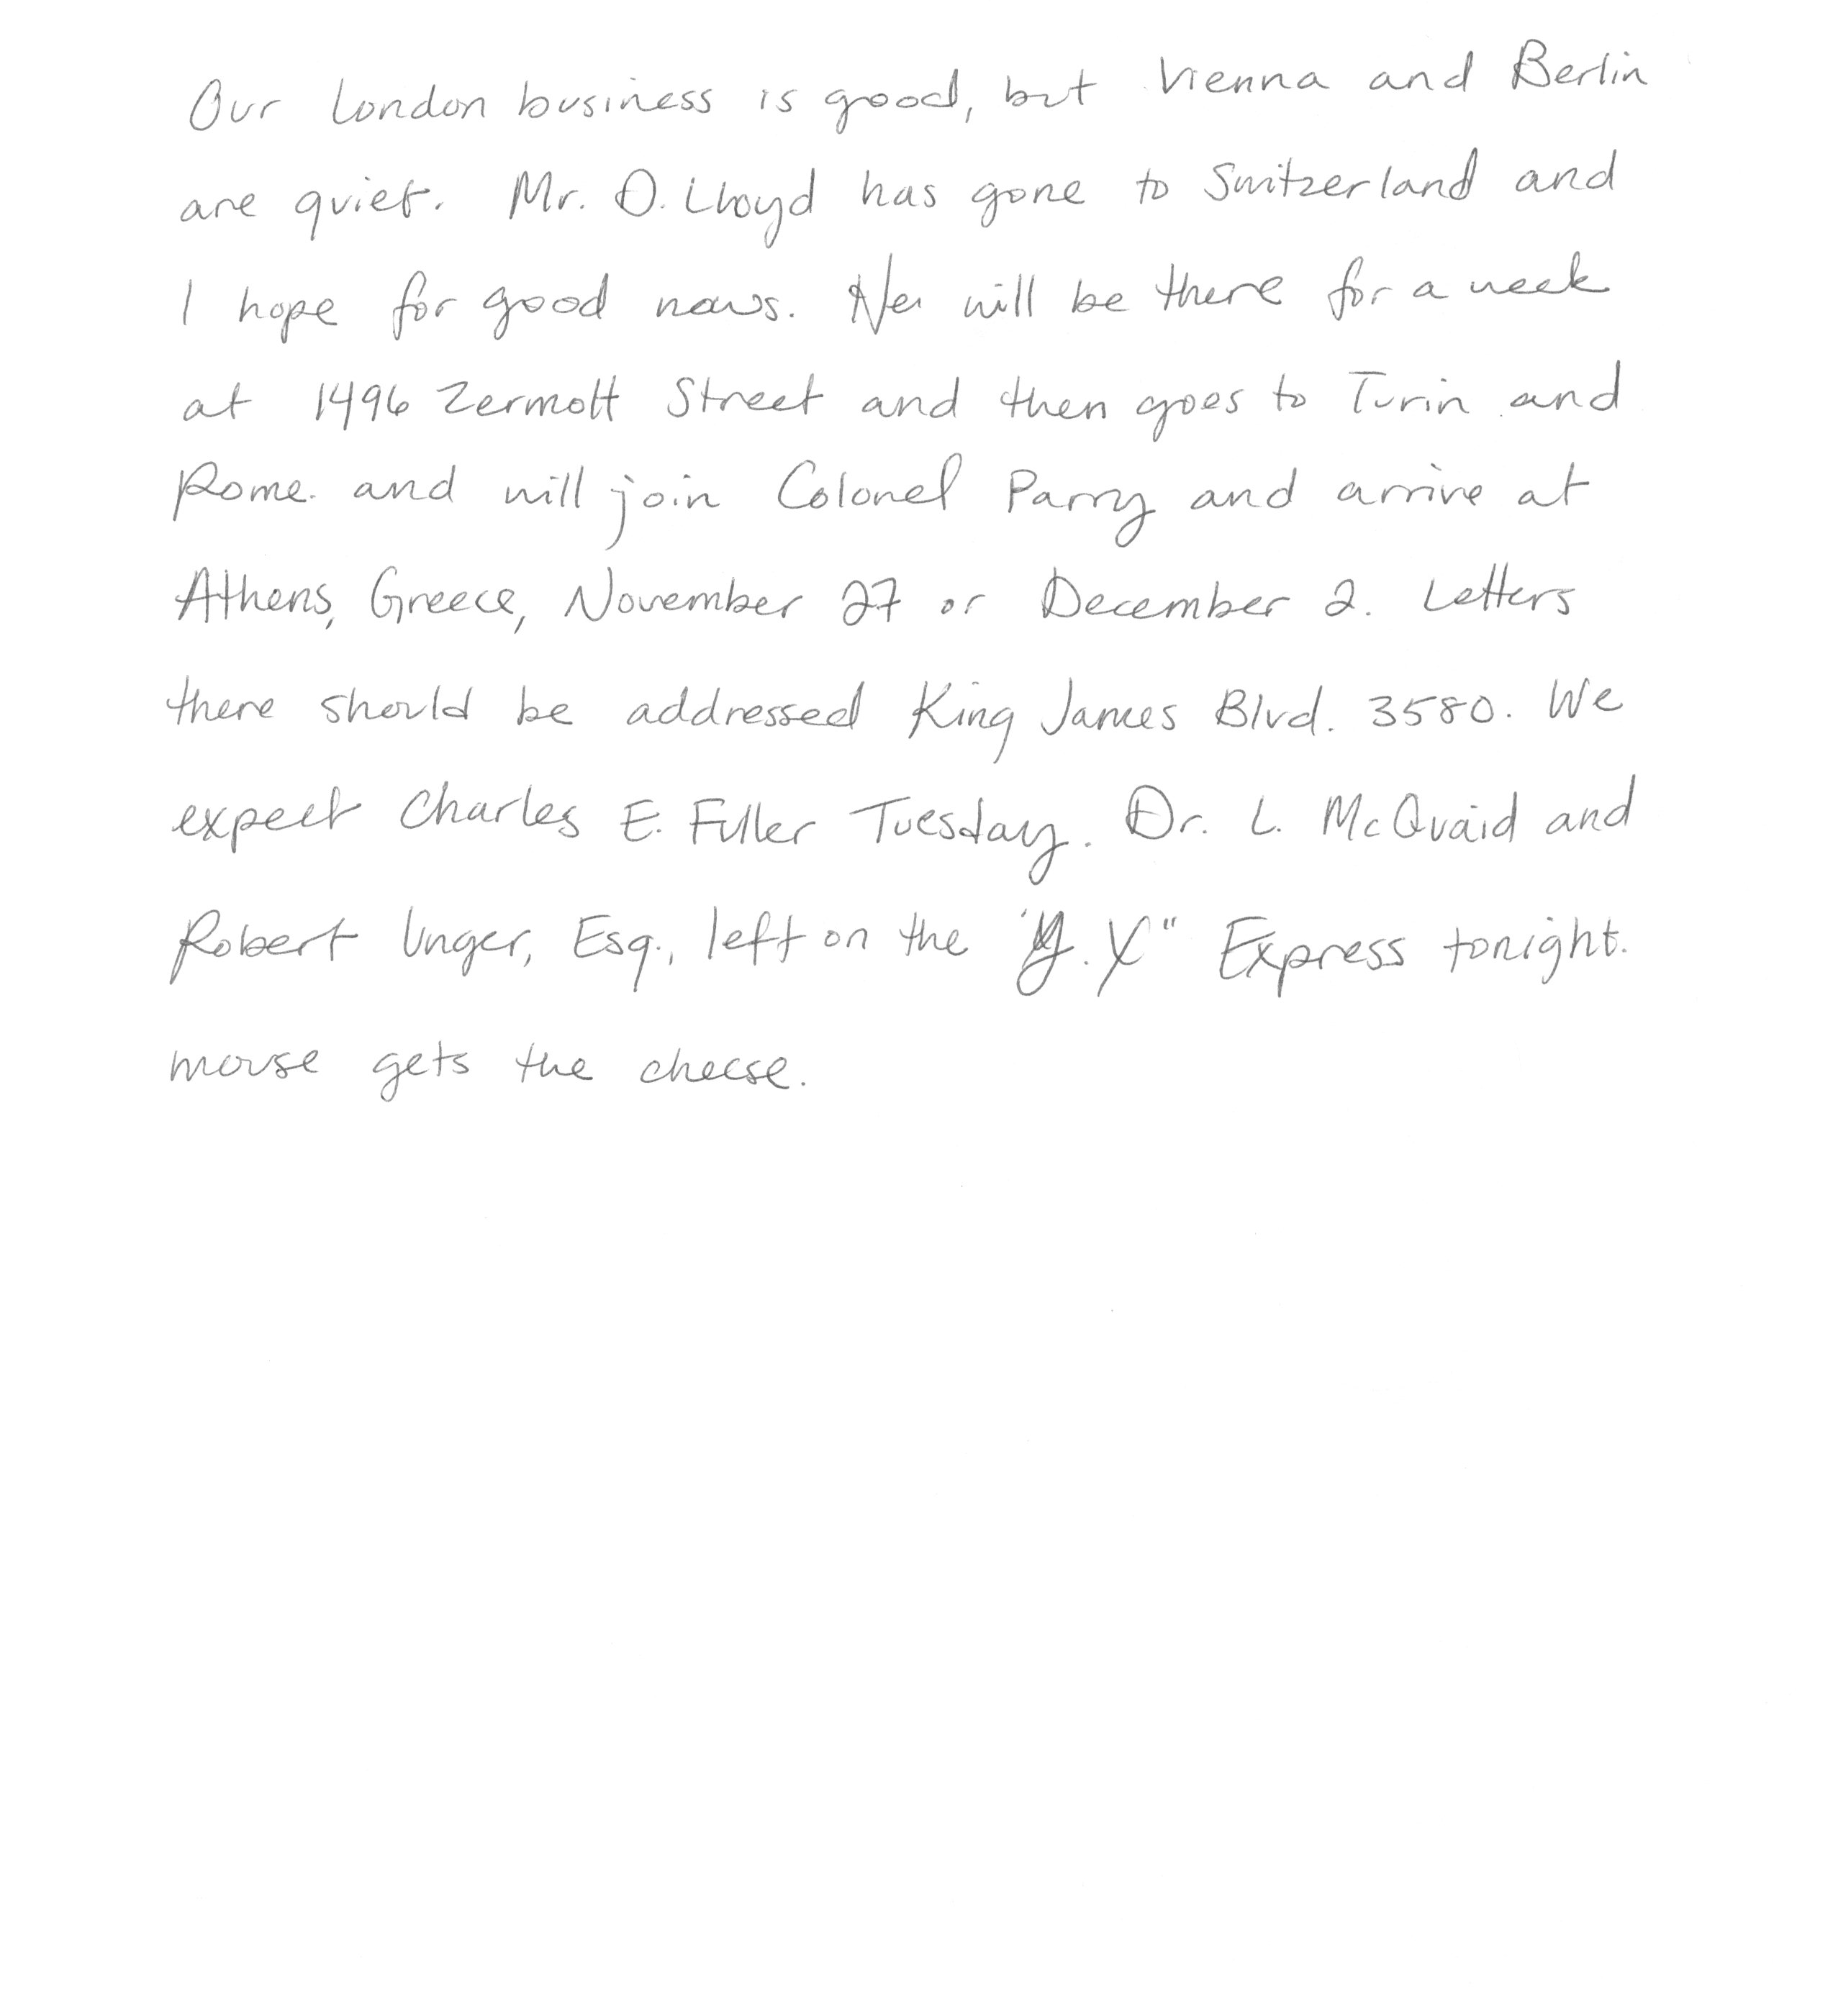 Our London business is good, but Vienna and Berlin
are quiet. Mr. D. Lloyd has gone to Switzerland and
I hope for good news. He will be there for a week
at 1496 Zermott Street and then goes to Turin and
Rome. and will join Colonel Parry and arrive at
Athens, Greece, November 27 or December 2. Letters
there should be addressed King James Blvd. 3580. We
expect Charles E. Fuller Tuesday. Dr. L. McQuaid and
Robert Unger, Esq., left on the "Y.X" Express tonight.
mouse gets the cheese.